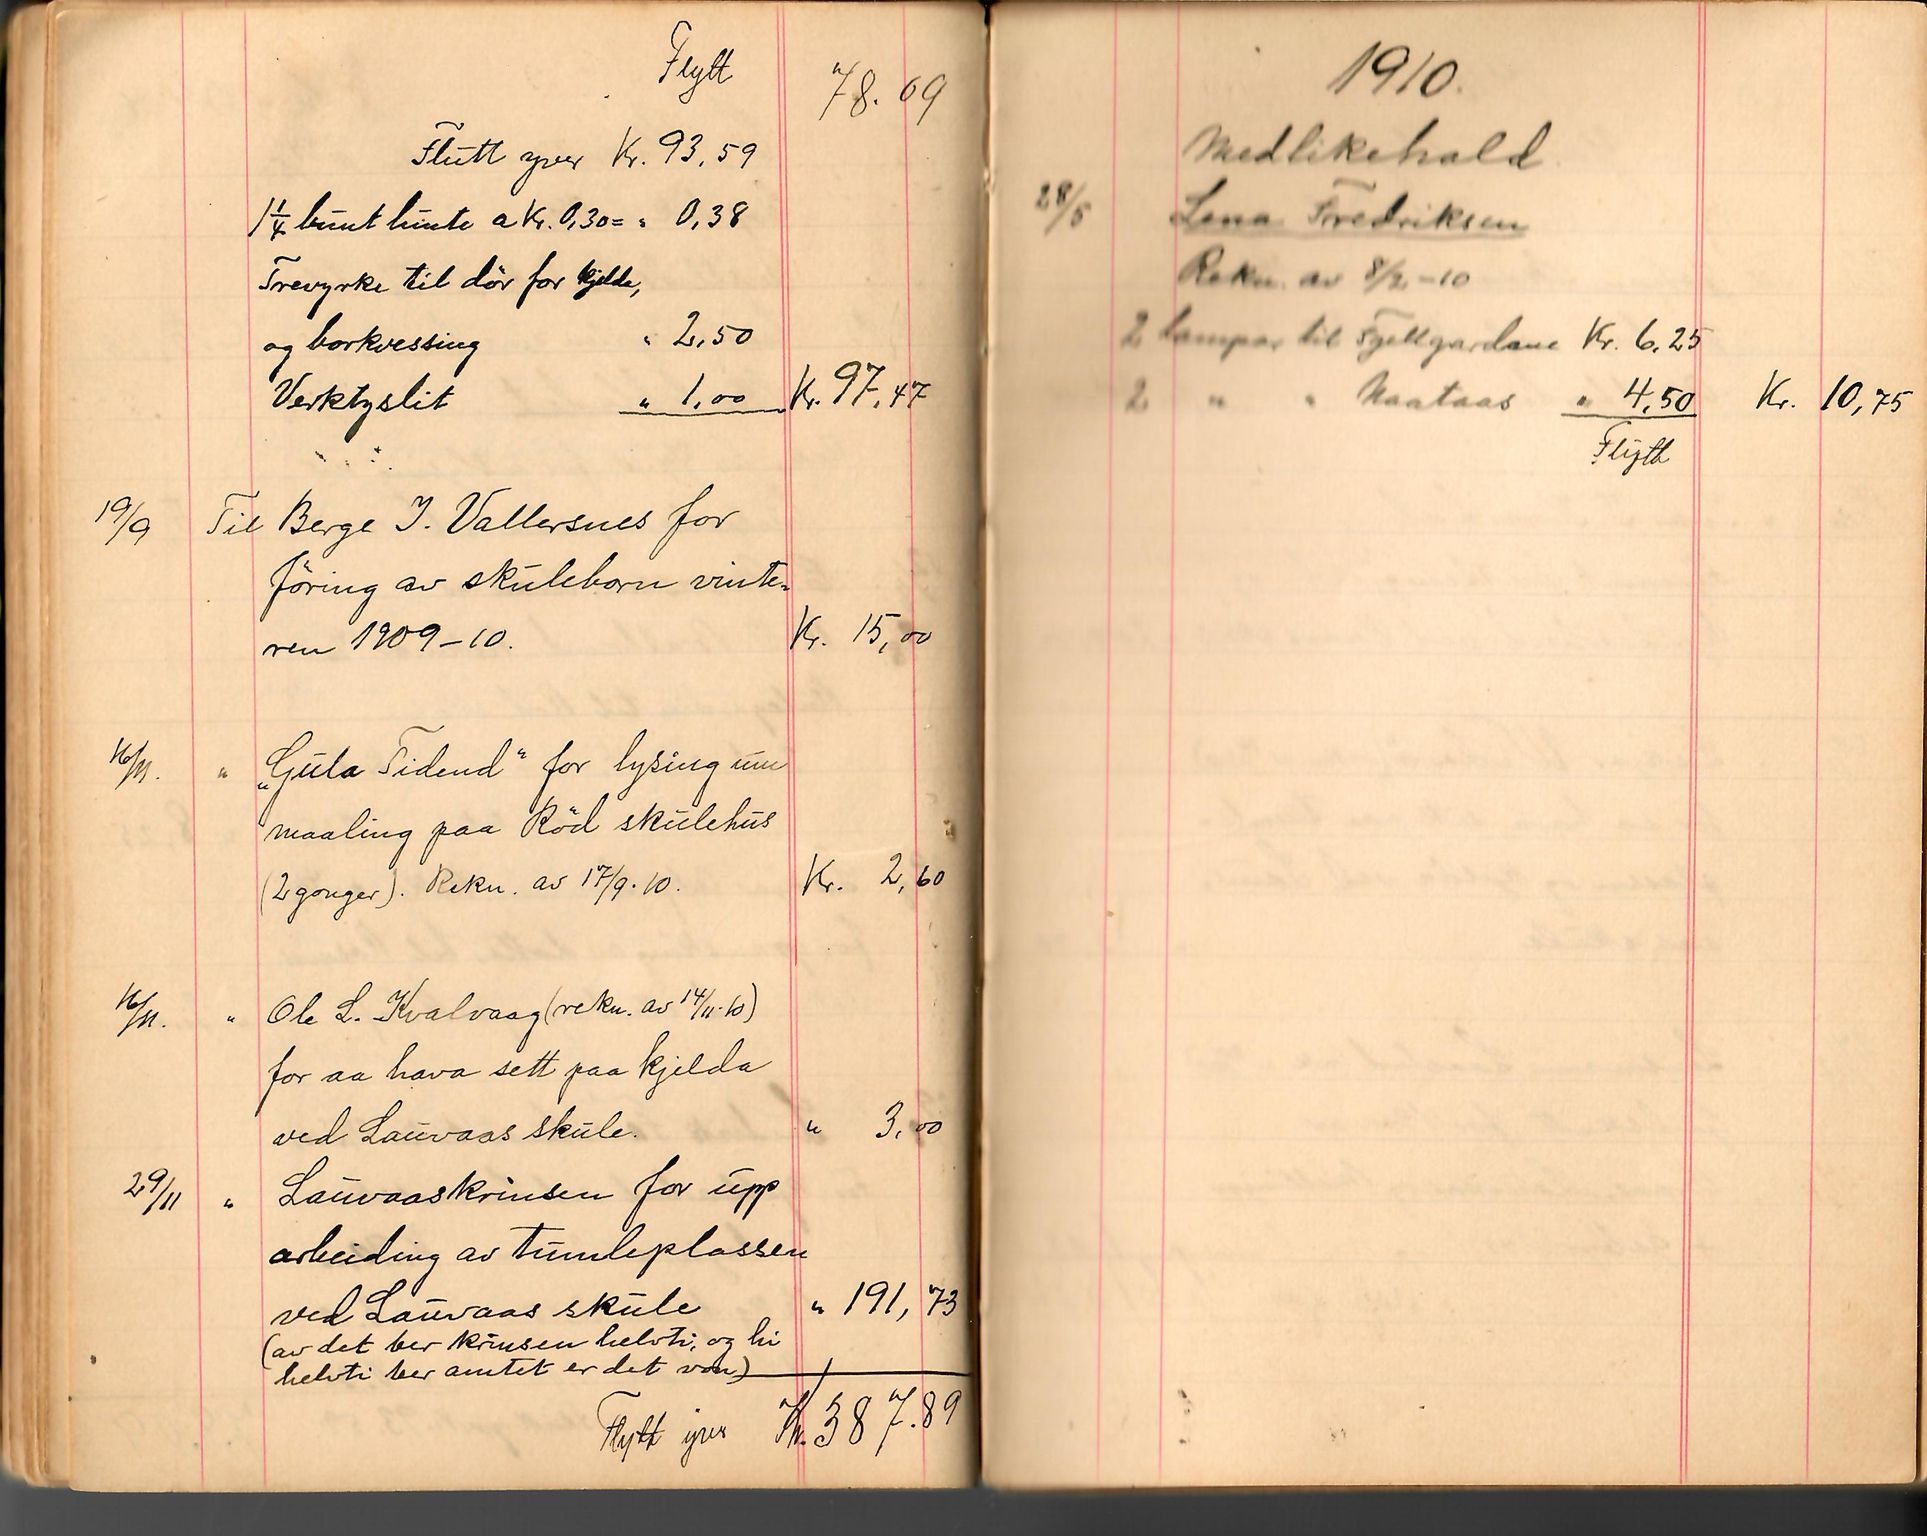 Flytt 78.09
Flutt yver Kr. 93,59
1 1/4 bunt lunte a Kr. 0,30 = " 0,38
Trevyrke til dör for kjelde,
og borkvessing " 2,50
Verktyslit " 1,00 Kr. 97,47
19/9 Til Berge J. Vallersnes for
föring av skuleborn vinte-
ren 1909-10. Kr. 15,00
16/11. " "Gula Tidend" for lysing um
maaling paa Röd skulehus
(2 gonger). Rekn. av 17/9.10. Kr. 2,60
16/11. " Ole L. Kvalvaag (rekn. av 14/11.10)
for aa hava sett paa kjelda
ved Lauvaas skule. " 3,00
29/11 " Lauvaaskrinsen for upp
arbeiding av tumleplassen
ved Lauvaas skule " 191,73
(av det ber krinsen helvti, og hi
helvti ber amtet er det von)
Flytt yver Kr. 387.89
1910.
Medlikehald
28/5 Lena Fredriksen
Rekn. av 8/2-10
2 lampar til Fjellgardane Kr. 6,25
2 " " Naataas " 4,50 Kr. 10,75
Flytt